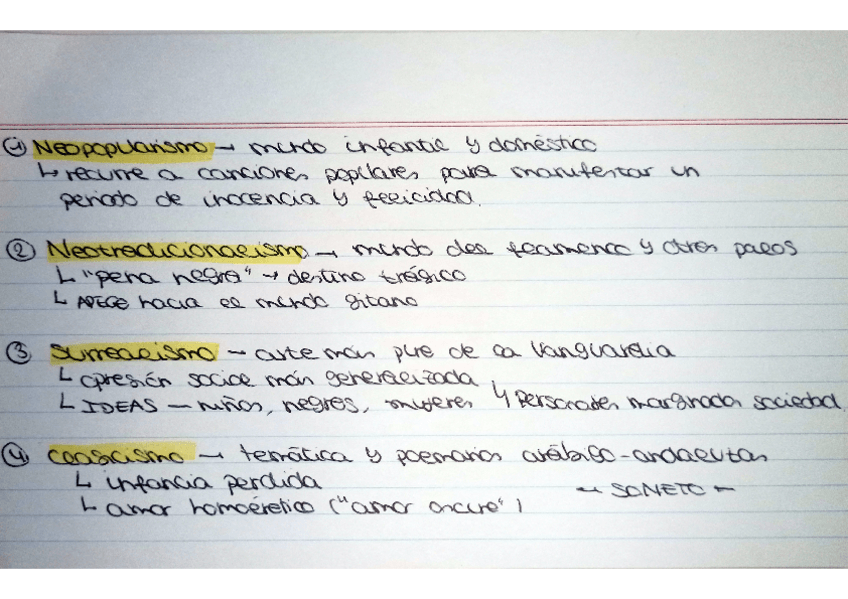 ① Neopopularismo → mundo infantil y doméstico
↳ recurre a canciones populares para manifestar un
periodo de inocencia y felicidad.
② Neotradicionalismo → mundo del flamenco y otros palos
↳ "pena negra" → destino trágico
↳ APEGE hacia el mundo gitano
③ Surrealismo – arte más pure de la Vanguardia
↳ opresión social más generalizada
↳ IDEAS – niños, negros, mujeres y personajes marginados sociedad.
④ Clasicismo → temática y poemarios arábigo-andaluzas
↳ infancia perdida
– SONETO –
↳ amor homoérotico ("amor oscuro")